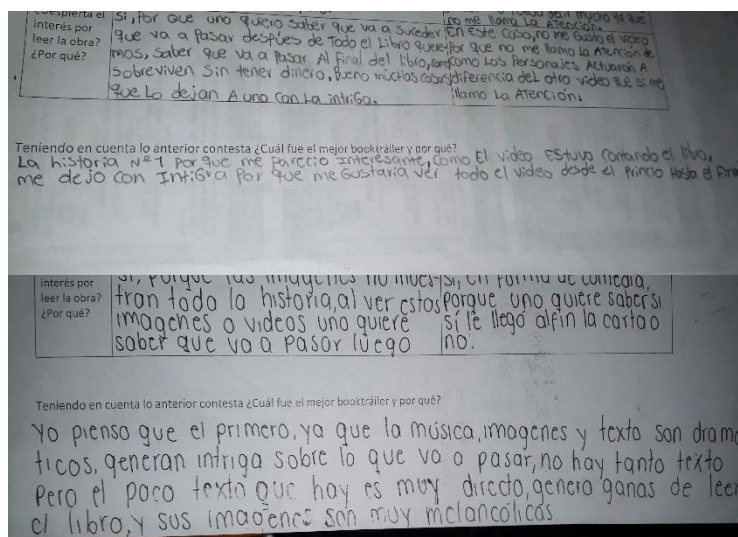 interés por
leer la obra?
¿Por qué?
Si, Por que uno quiero saber que va a suceder
que va a Pasar despúes de Todo el Libro
mos, saber que va a Pasar Al Final del libro,
Sobreviven Sin tener dinero, Bueno muchas cosas
que Lo dejan A uno con La intriGa.
no me llama La Atención.
En este caso, no me Gusto el video
Por que no me llamo La Atención
como Los Personajes Actuaron A
diferencia del otro video que si me
llamo La Atención.
Teniendo en cuenta lo anterior contesta ¿Cuál fue el mejor booktráiler y por qué?
La historia Nº 1 Por que me Parecio Interesante, como El video Estuvo contando el libro,
me dejo con IntiGra Por que me Gustaria ver todo el video desde el Princio Hasta el Fin
interés por
leer la obra?
¿Por qué?
Si, Porque las imagenes no mues-
tran toda la historia, al ver estos
imagenes o videos uno quiere
saber que va a pasar luego
Si, en forma de comedia,
porque uno quiere saber si
sí le llegó alfin la carta o
no.
Teniendo en cuenta lo anterior contesta ¿Cuál fue el mejor booktráiler y por qué?
Yo pienso que el primero, ya que la música, imagenes y texto son drama
ticos, generan intriga sobre lo que va a pasar, no hay tanto texto
Pero el poco texto que hay es muy directo, genero ganas de leer
el libro, y sus imagenes son muy melancólicas